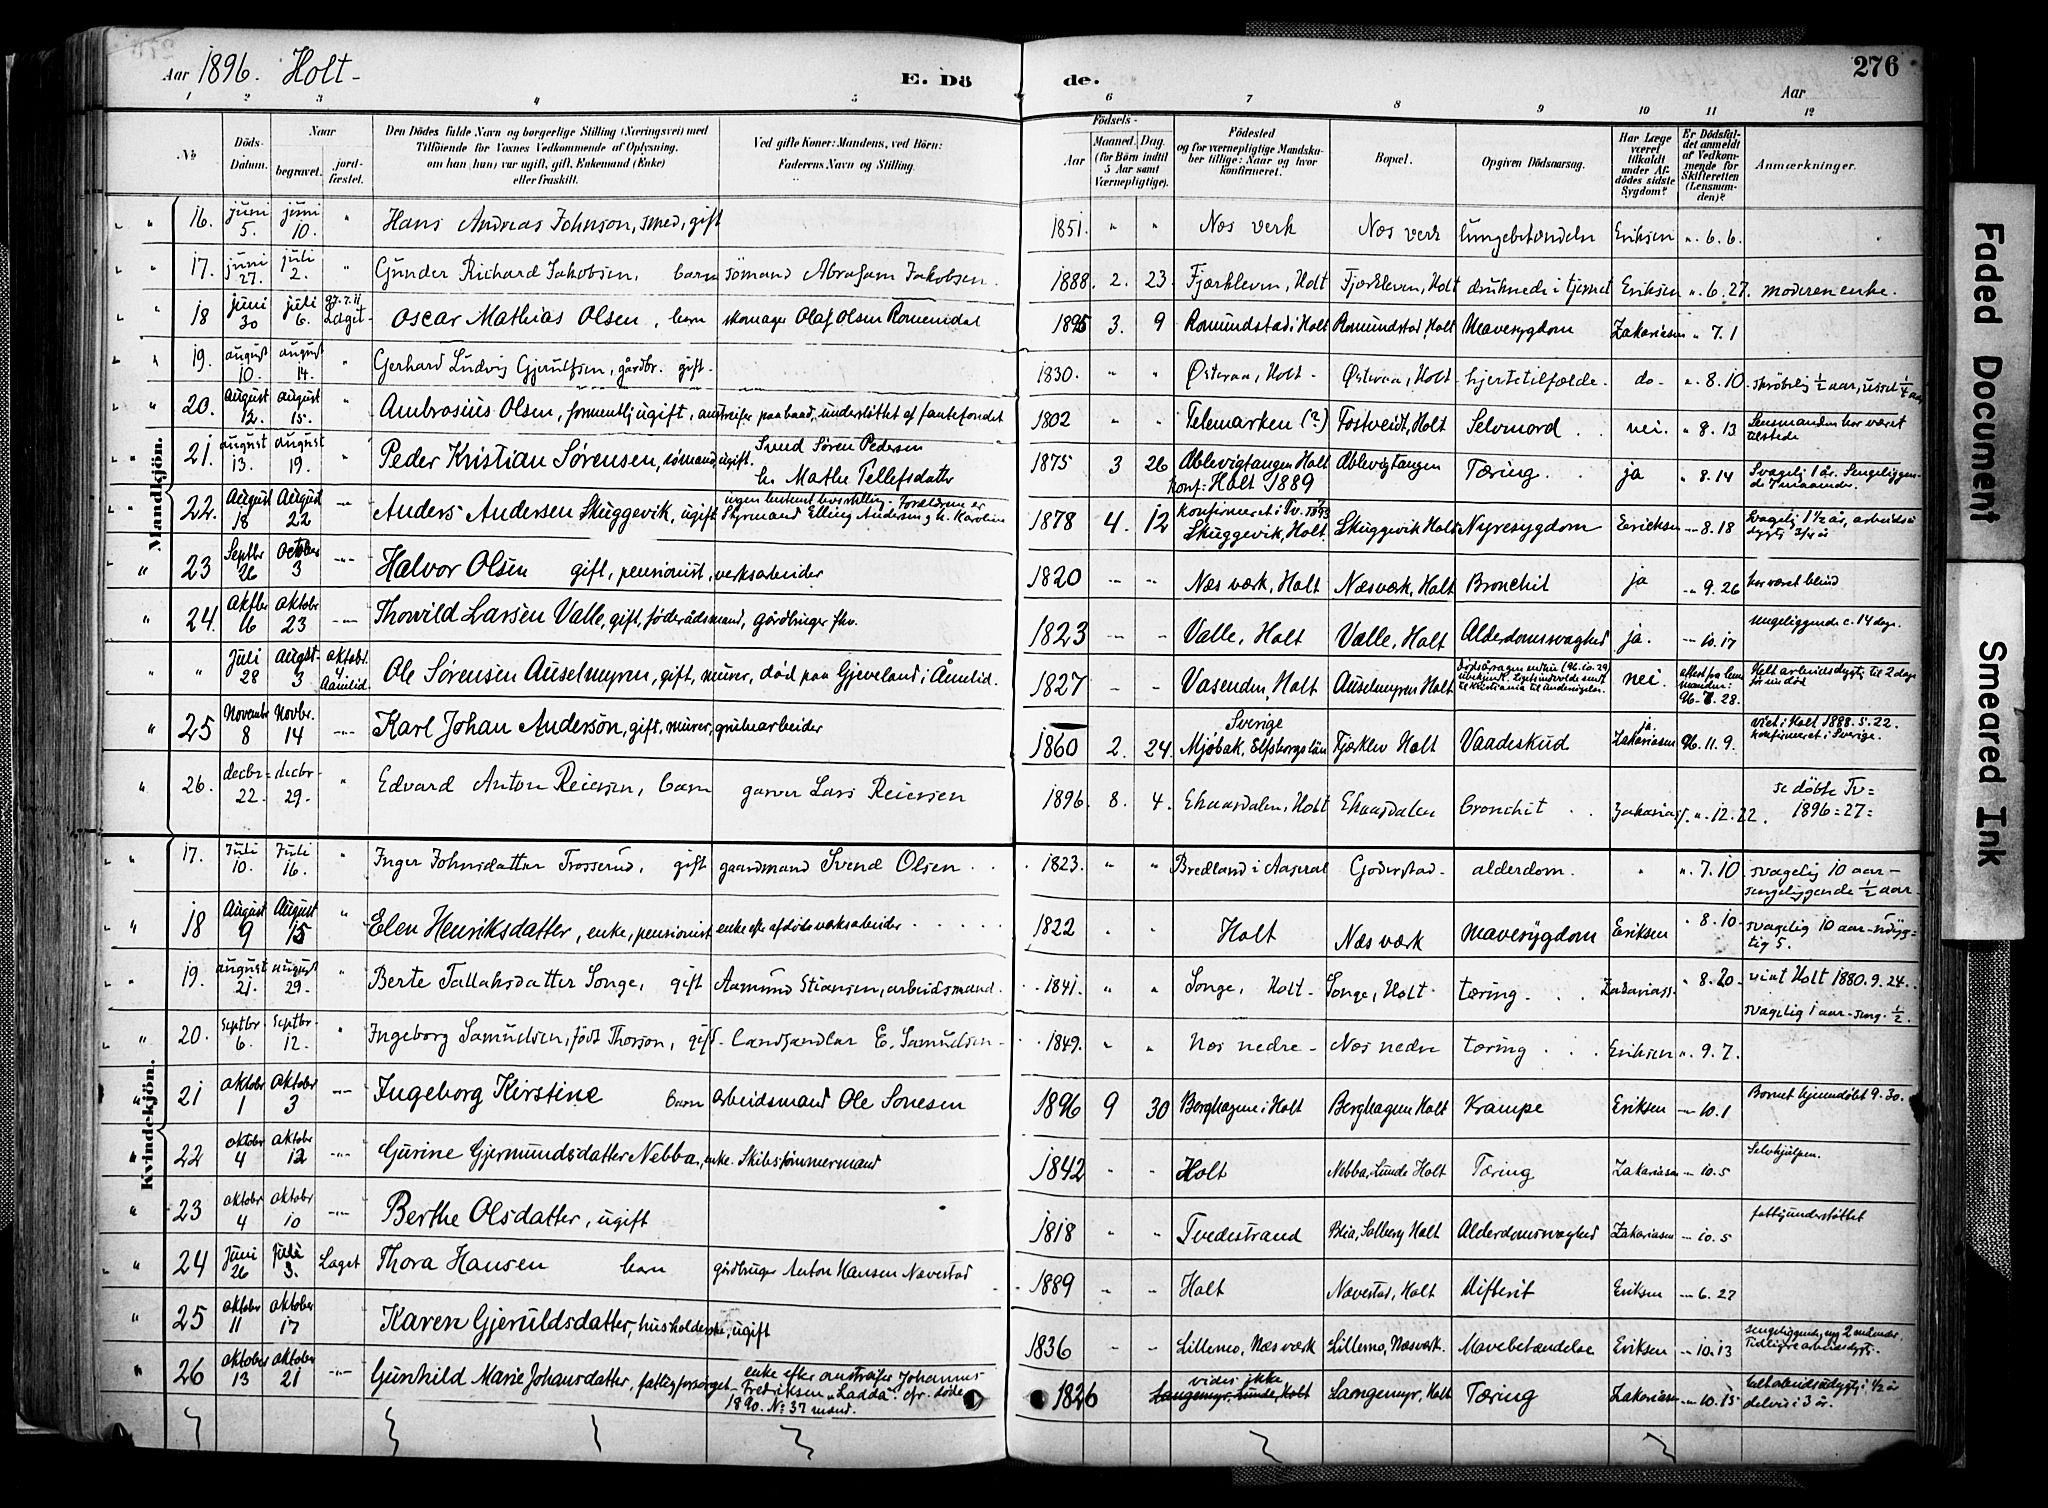 Aar 1896. Holt-
E. Dö
de.
276
Aar
1 2 3 4 5 6 7 8 9 10 11 12
№
Döds-Datum.
Naar
begravet.
jord-fæstet.
Den Dödes fulde Navn og borgerlige Stilling (Næringsvei) med
Tilföiende for Voxnes Vedkommende af Oplysning,
om han (hun) var ugift, gift, Enkemand (Enke)
eller fraskilt.
Ved gifte Koner: Mandens, ved Börn:
Faderens Navn og Stilling.
Födsels-
Aar
Maaned. Dag.
(for Börn indtil
5 Aar samt
Værnepligtige).
Födested
og for værnepligtige Mandsku-
ber tillige: Naar og hvor
konfirmeret.
Bopæl.
Opgiven Dödsaarsag.
Har Læge
været
tilkaldt
under Af-
dödes sidste
Sygdom?
Er Dödsfal-
det anmeldt
af Vedkom-
mende for
Skifteretten
(Lensman-
den)?
Anmærkninger.
Mandkjön.
" " 16. juni 5. juni 10. " Hans Andreas Johnson, smed, gift 1851. " " Næs verk Næs verk lungebetændelse Eriksen " 6. 6.
" " 17. juni 27. juli 2. " Gunder Richard Jakobsen, barn sömand Abraham Jakobsen. 1888. 2. 23. Fjærkleven, Holt Fjærkleven, Holt druknede i tjernet Eriksen " 6. 27. moderen enke.
" " 18 juni 30 juli 6. Laget- Oscar Mathias Olsen, barn skomager Olaf Olsen Romendal 1895 3. 9 Romundstad i Holt Romundstad, Holt Mavesygdom Zakariasen " 7. 1
" " 19. august 10. august 14. " Gerhard Ludvig Gjerulfsen, gårdbr. gift- 1830. " " Østeraa, Holt- Østeraa, Holt- hjertetilfælde. do- " 8. 10. skrøbelig ½ aar, ussel ¼ aar
" " 20. august 12. august 15. " Ambrosius Olsen, formentlig ugift, omstreifer paa baad, understöttet af fantefondet 1802 Telemarken (?) Fostveidt, Holt Selvmord nei. " 8. 13 Lensmanden har været tilstede
" " 21. august 13. august 19. " Peder Kristian Sørensen, sømand, ugift. Svend Sören Pedersen h. Mathe Tellefsdatter 1875 3 26 Ablevigtangen Holt Konf: Holt 1889 Ablevigtangen Tæring. ja " 8. 14 Svagelig 1 år. Sengeliggende 7 maaneder.
" " 22. August 18 August 22 " Anders Andersen Skuggevik, ugift ingen bestemt livsstilling. Forældrene er Styrmand Elling Andersen og h. Karoline 1878 4. 12 konfirmeret i Tv. 1893 Skuggevik, Holt. Skuggevik Holt Nyresygdom Ericksen " 8. 18 Svagelig 1½ år, arbeidsudygtig 3/4 år
" 23 Septbr 26 October 3 " Halvor Olsen gift, pensionist, verksarbeider 1820 " " Næs værk, Holt Næsværk, Holt Bronchit ja " 9. 26 har været blind
" 24. Oktbr 16 oktobr 23 " Thorvild Larsen Valle, gift, föderådsmand, gårdbruger fhv. 1823 " " Valle, Holt Valle, Holt Alderdomssvaghed ja. " 10. 17 sengeliggende c. 14 dage.
" " Juli 28 August 3 oktobr. 4. Aamlid. Ole Sørensen Auselmyren, gift, murer, död paa Gjeveland i Åmlid. 1827 " " Vasenden, Holt Auselmyren Holt nei. attest fra lensmanden: 96. 7. 28. Helt arbeidsdygtig til 2 dage för sin död
" 25 Novembr 8 Novbr. 14 " Karl Johan Anderson, gift, murer, grubearbeider 1860 2. 24. Sverige Mjøbak, Elfsborgslän Fjæklev Holt Vaadeskud ja Zakariasen 96. 11. 9. viet i Holt 1888. 5. 22. konfirmeret i Sverige.
" 26. decbr- 22. decbr- 29. " Edvard Anton Reiersen, barn garver Lars Reiersen 1896. 8. 4. Ekaasdalen, Holt Ekaasdalen bronchit Zakarias. " 12. 22. se döbte Tv= 1896=27=
Kvindekjön.
" " 17. Juli 10. Juli 16. " Inger Johnsdatter Trosserud, gift gaardmand Svend Olsen 1823. " " Bredland i Aaseral Goderstad- alderdom. " " 7. 10 svagelig 10 aar- sengeliggende ½ aar-
" " 18 August 9 August 15 " Elen Henriksdatter, enke, pensionist enke efter afdöde verksarbeider 1822 " " Holt Næs værk Mavesygdom Eriksen " 8. 10- svagelig 10 aar-udygtig 5.
" " 19. august 21. august 29. " Berte Tallaksdatter Songe, gift Aamund Stiansen, arbeidsmand. 1841. " " Songe, Holt- Songe, Holt- tæring- Zakariass. " 8. 20. viet Holt 1880. 9. 24. svagelig 1 aar-seng. ½.
" 20. septbr- 6. septbr- 12. " Ingeborg Samuelsen, født Thorson, gift- landhandler E. Samuelsen- 1849. " " Næs nedre- Næs nedre tæring Eriksen " 9. 7.
" 21 oktobr 1 oktobr 3 " Ingeborg Kirstine barn arbeidsmand Ole Sonesen 1896 9 30 Berghagen i Holt Berghagen Holt Krampe Eriksen " 10. 1 Barnet hjemmedöbt 9. 30.
" 22 oktobr 4 oktobr 12 " Gurine Gjermundsdatter Nebba, enke. Skibstømmermand 1842 " " Holt Nebba, Lunde Holt Tæring Zakariasen " 10. 5 Selvhjulpen.
" 23 oktobr 4 oktobr 10 " Berthe Olsdatter, ugift 1818 " " Tvedestrand Blia, Solberg Holt Alderdomssvaghed Zakariasen " 10. 5 fattigunderstöttet
" " 24 Juni 26 Juli 3. Laget Thora Hansen barn gårdbruger Anton Hansen Nævestad 1889 " " Holt Nævestad, Holt Difterit Eriksen " 6. 27
" 25 oktobr 11 oktober 17 Karen Gjeruldsdatter, husholderske, ugift 1836 " " Lillemo, Næsværk Lillemo, Næsværk. Mavebetændelse Eriksen " 10. 13 sengeliggende, syg 2 måneder. Tidligere arbeidsdygtig.
" 26 oktobr 13 oktobr 21 " Gunhild Marie Johansdatter, fattigforsørget- enke efter omstreifer Johannes Fredriksen "Ladda" cfr. döde 1890. No: 37 mand. 1826 vides ikke Langemyr, Lunde, Holt Langemyr, Holt Tæring Zakariasen " 10. 15 helt arbeidsudygtig i ½ år delvis i 3 år.
Faded Document
Smeared Ink